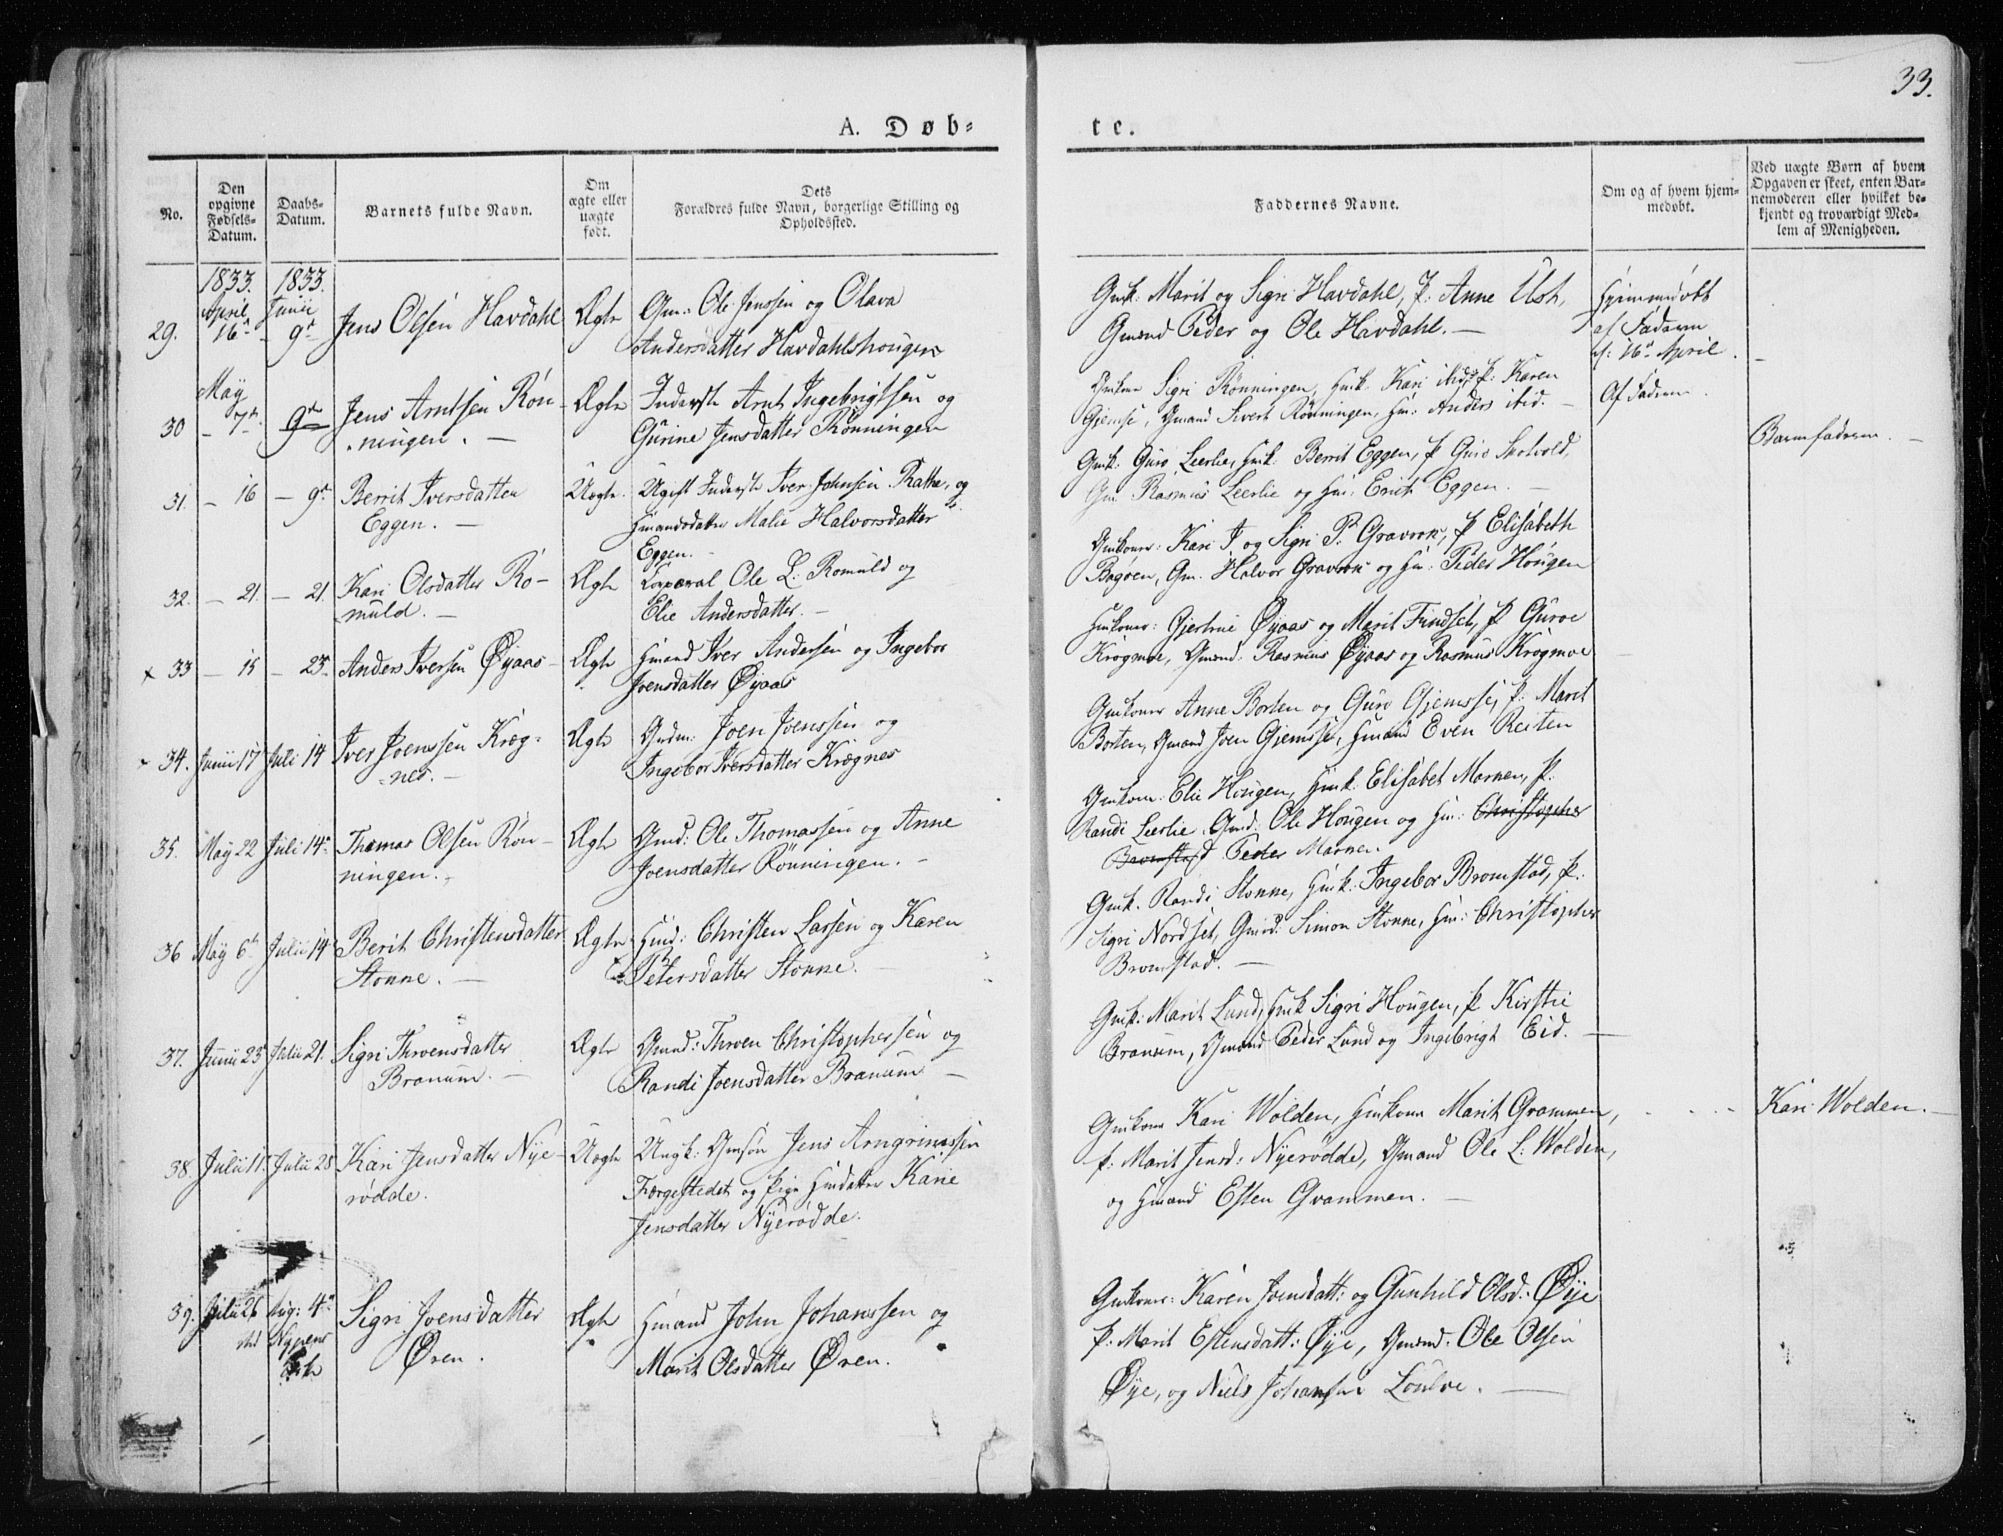 33.
A. Døb-
te.
No.
Den opgivne Fødsels-Datum.
Daabs-Datum.
Barnets fulde Navn.
Om ægte eller uægte født.
Dets Forældres fulde Navn, borgerlige Stilling og Opholdssted.
Faddernes Navne.
Om og af hvem hjemmedøbt.
Ved uægte Børn af hvem Opgaven er skeet, enten Barnemoderen eller hvilket bekjendt og troværdigt Medlem af Menigheden.
1833. 1833.
29. April 16de Junii 9de Jens Olsen Havdahl Ægte Gm: Ole Jenssen og Olava
Andersdatter Havdahlshougen
Gmk: Marit og Sigri Havdahl, P. Anne Ust,
Gmænd Peder og Ole Havdahl. —
Hjemmedøbt
af Faderen
d: 16de April.
30 May — 7de 9de Jens Arntsen Røn-
ningen. — Ægte Inderste Arnt Ingebrigtsen og
Gurine Jensdatter Rønningen
Hmkone Sigri Rønningen, Hmk. Kari ibid, P: Karen
Gjemse, Gmand Sivert Rønningen, Hm: Anders ibid. —
Af Faderen.
31. — 16 — 9de Berrit Iversdatter
Eggen. — Uægte. Ugift Inderste Iver Johnsen Rathe, og
Hmandsdatter Malie Halvorsdatter
Eggen. —
Gmk. Guro Leerlie, Hmk. Berrit Eggen, P Guro Skotvold,
Gm. Rasmus Leerlie og Hm: Erich Eggen. —
Barnefaderen. —
32. — 21. — 21. Kari Olsdatter Ro-
muld. — Ægte Corporal Ole L. Romuld og
Elie Andersdatter. —
Gmkoner: Kari J og Sigri P. Gravrok, P Elisabeth
Bogøen, Gm. Halvor Gravrok og Hm: Peder Hougen
x 33 — 15 — 23. Anders Iversen Øyaas Ægte Hmand Iver Andersen og Ingebor
Joensdatter Øyaas
Hmkoner: Gjertrue Øyaas og Marit Fundset, P Guroe
Krogmoe, Gmænd: Rasmus Øyaas og Rasmus Krogmoe
34. Junii 17 Juli 14 Iver Joenssen Kræg-
nes. — Ægte Gmdm: Joen Joenssen og
Ingebor Iversdatter Krægnes
Gmkoner Anne Borten og Guro Gjemsse, P: Marit
Borten, Gmand Joen Gjemsse, Hmand Even Reiten
35. May 22 Juli 14de Thomas Olsen Røn-
ningen. Ægte Gmd: Ole Thomassen og Anne
Joensdatter Rønningen. —
Gmkone: Elie Hougen, Hmk: Elisabet Marken, P.
Randi Leerlie. Gmd: Ole Hougen og Hm: Christopher
Bromstad Peder Marken
36 May 6te Julii 14 Berit Christensdatter
Stonne. — Ægte Hmd: Christen Larsen og Karen
Petersdatter Stonne. —
Gmk. Randi Stonne, Hmk: Ingebor Bromstad, P.
Sigri Nordset, Gmd: Simon Stonne, Hm: Christopher
Bromstad. —
37. Junii 23 Julii 21. Sigri Throensdatter
Branum. — Ægte Gmnd: Throen Christophersen og
Randi Joensdatter Branum —
Gmk: Marit Lund, Hmk Sigri Hougen, P Kirstie
Branum, Gmænd Peder Lund og Ingebrigt Eid. —
38. Julii 11. Julii 28 Kari Jensdatter Nye-
rødde. Uægte Ungk: Gmsøn Jens Arngrimssen
Færgestedet og Pige Hmdatter Karie
Jensdatter Nyerødde.
Gmkone Kari Wolden, Hmkone Marit Grammen,
P: Marit Jensd: Nyerødde, Gmand Ole L. Wolden,
og Hmand Esten Grammen. —
Kari Wolden. —
39. Julii 26 Aug: 4de Sigri Joensdatter
Øren. Ægte Hmand John Johanssen og
Marit Olsdatter Øren.
Gmkoner: Karen Joensdatt: og Gunhild Olsd: Øye
P: Marit Estensdatt: Øye, Gmænd. Ole Olsen
Øye, og Niels Johansen Loulve. —